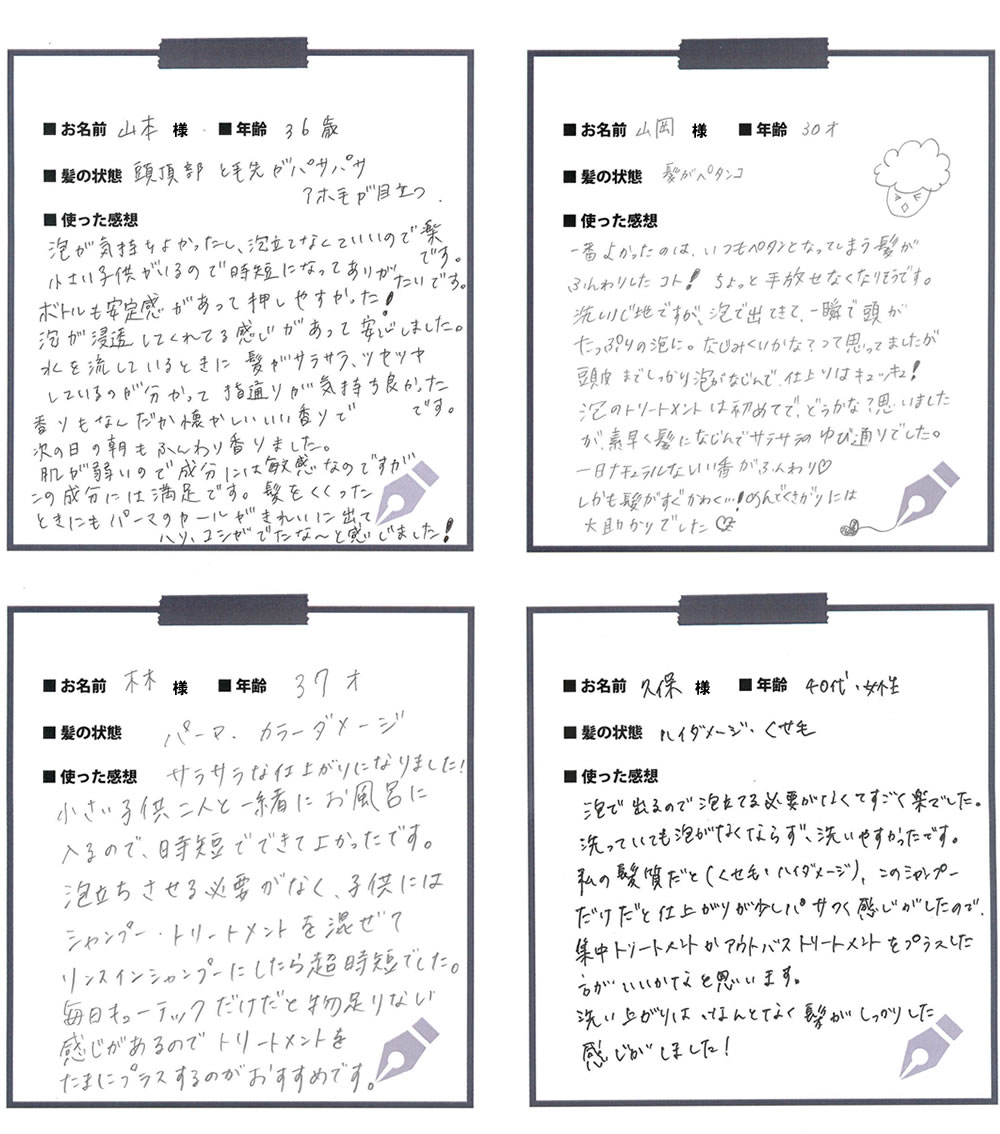 ■お名前 山本 様 ■年齢 36歳
■髪の状態 頭頂部と毛先がパサパサ
アホ毛が目立つ.
■使った感想
泡が気持ちよかったし、泡立てなくていいので楽です。
小さい子供がいるので時短になってありがたいです。
ボトルも安定感があって押しやすかった!
泡が浸透してくれてる感じがあって安心しました。
水を流しているときに髪がサラサラ、ツヤツヤ
しているのが分かって指通りが気持ち良かったです。
香りもなんだか懐かしいいい香りで
次の日の朝もふんわり香りました。
肌が弱いので成分には敏感なのですが
この成分には満足です。髪をくくった
ときにもパーマのカールがきれいに出て
ハリ、コシがでたな〜と感じました!
■お名前 山岡 様 ■年齢 30才
■髪の状態 髪がペタンコ
■使った感想
一番よかったのは、いつもペタンとなってしまう髪が
ふんわりしたコト! ちょっと手放せなくなりそうです。
洗い心地ですが、泡で出てきて、一瞬で頭が
たっぷりの泡に。なじみくいかな?って思ってましたが
頭皮までしっかり泡がなじんで、仕上りはキュッキュ!
泡のトリートメントは初めてで、どうかな?思いました
が、素早く髪になじんでサラサラのゆび通りでした。
一日ナチュラルないい香がふんわり♡
しかも髪がすぐかわく…!めんでくさがりには
大助かりでした
■お名前 林 様 ■年齢 37才
■髪の状態 パーマ、カラーダメージ
■使った感想 サラサラな仕上がりになりました!
小さい子供二人と一緒にお風呂に
入るので、時短でできて上かったです。
泡立ちさせる必要がなく、子供には
シャンプー・トリートメントを混ぜて
リンスインシャンプーにしたら超時短でした。
毎日キューテックだけだと物足りない
感じがあるのでトリートメントを
たまにプラスするのがおすすめです。
■お名前 久保 様 ■年齢 40代・女性
■髪の状態 ハイダメージ・くせ毛
■使った感想
泡で出るので泡立てる必要がなくてすごく楽でした。
洗っていても泡がなくならず、洗いやすかったです。
私の髪質だと(くせ毛・ハイダメージ)、このシャンプー
だけだと仕上がりが少しパサつく感じがしたので、
集中トリートメントかアウトバストリートメントをプラスした
方がいいかなと思います。
洗い上がりは、なんとなく髪がしっかりした
感じがしました!